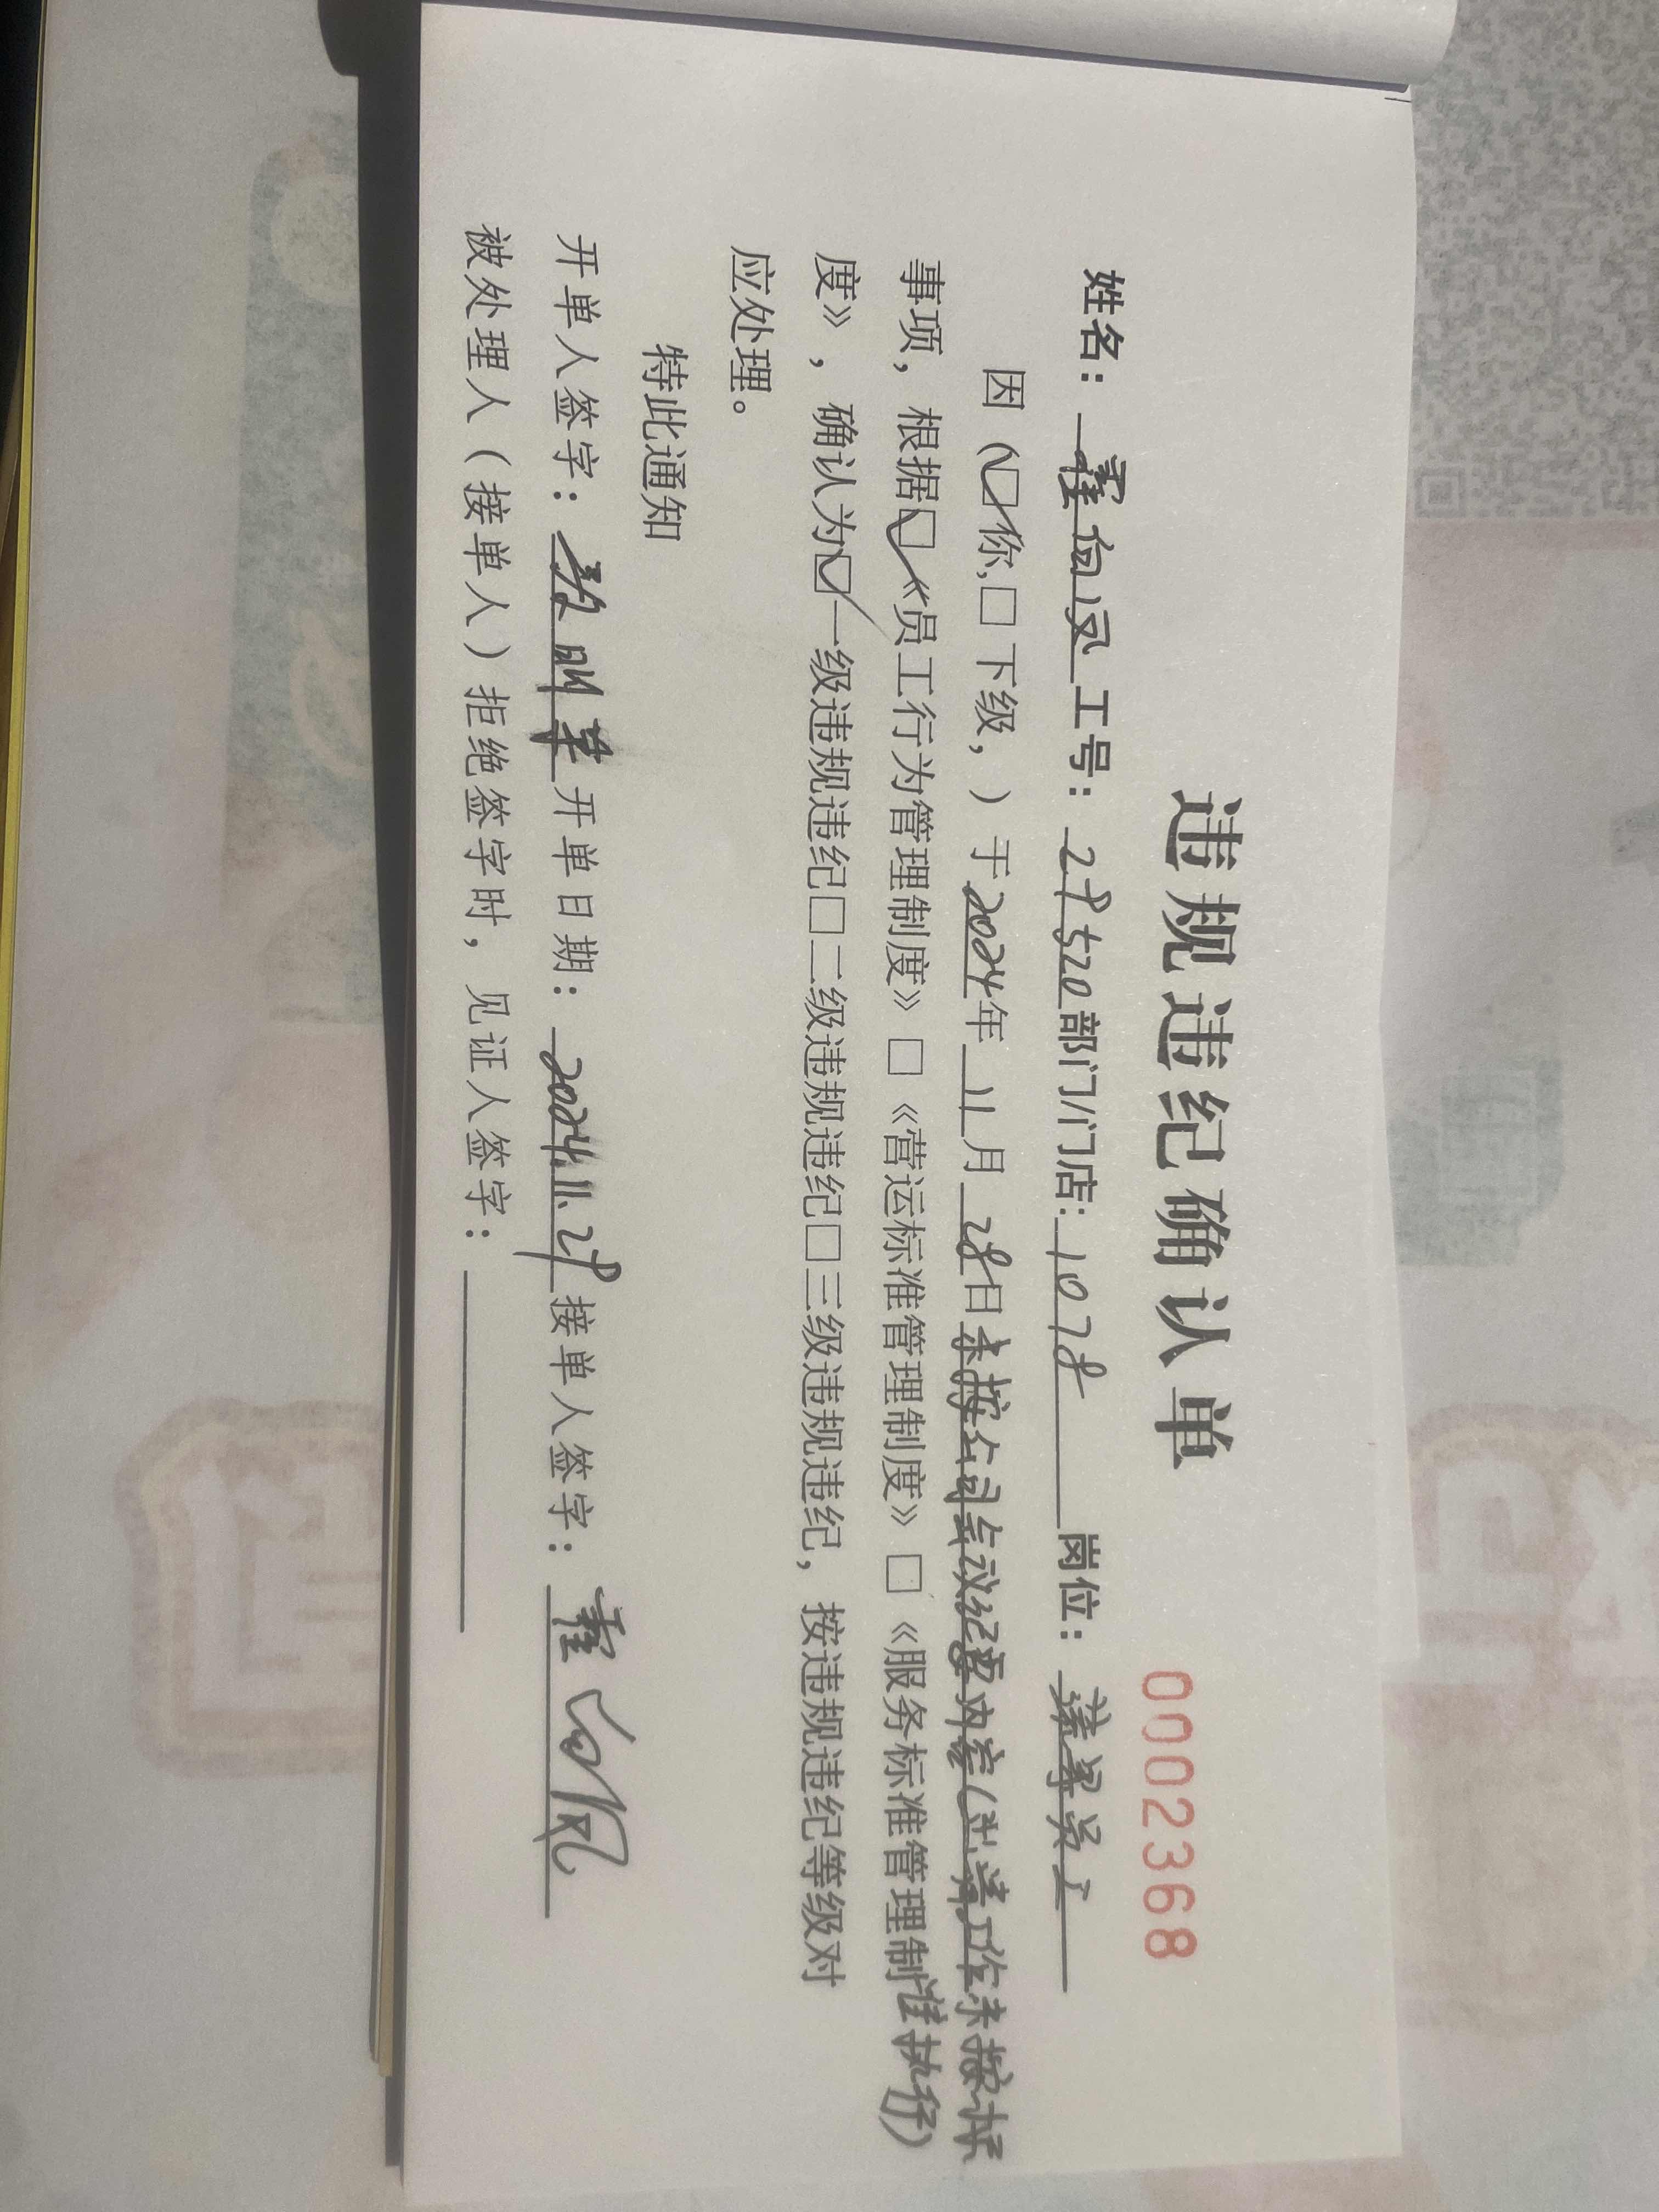 违规违纪确认单
0002368
姓名：向凤工号：28520部门/门店：1078岗位：员工
因（☑你,□下级，）于2024年11月28日未按公司会议纪要内容(出清工作未按标准执行)
事项，根据☑《员工行为管理制度》□《营运标准管理制度》□《服务标准管理制
度》，确认为☑一级违规违纪□二级违规违纪□三级违规违纪，按违规违纪等级对
应处理。
特此通知
开单人签字：明开单日期：2024.11.28接单人签字：向凤
被处理人（接单人）拒绝签字时，见证人签字：